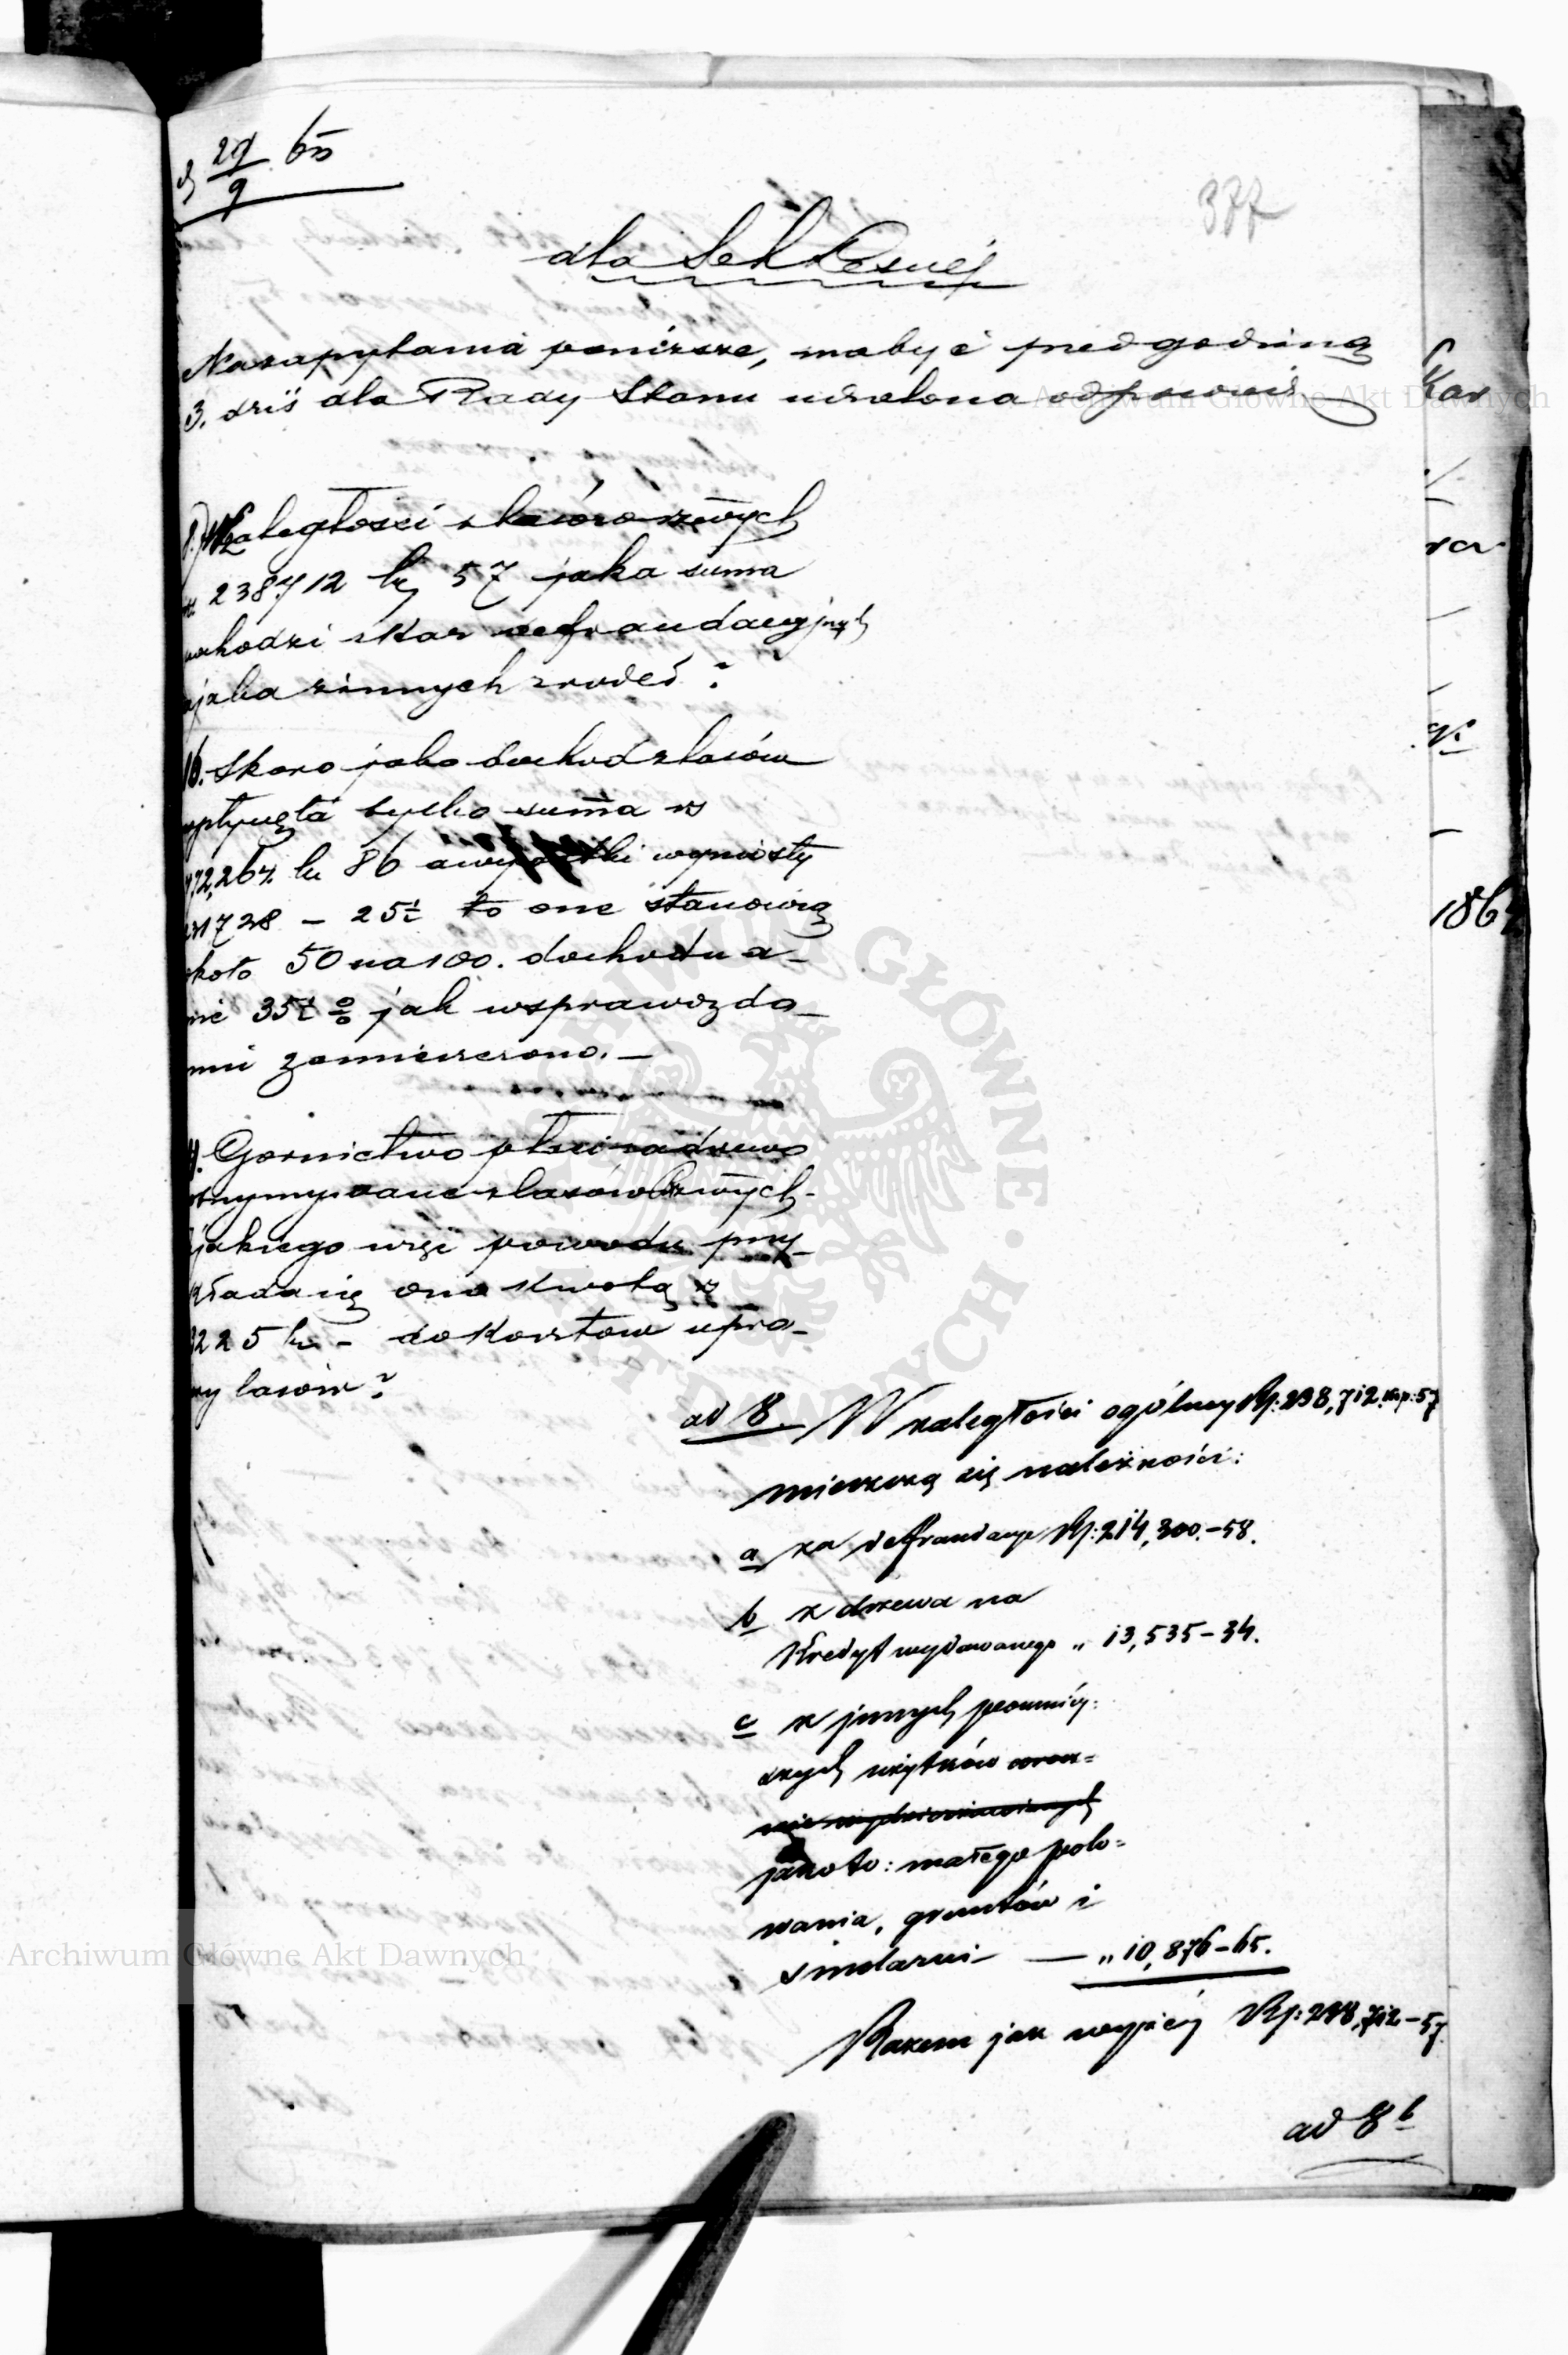 d 27/9 65
377
dla Sek Lesnéj
Na zapytania poniższe, ma być przed godziną
3. dziś dla Rady Stanu udzielona odpowiedź
8.) W Zaległości z lasów rządowych
238712 k 57 jaka suma
pochodzi z kar defraudacyjnych
a jaka z innych źrodeł ?
8b. Skoro jako dochód z lasów
wpłynęła tylko suma rs
86 a wydatki wyniosły
31728 - 25½ to one stanowią
około 50 na 100. dochodu a-
nie 35½ % jak w sprawozda-
niu zamieszczono. —
9. Gornictwo płaci za drzewo
otrzymywane z lasów Rzwych-
z jakiego więc powodu przy-
kłada się ono kwotą rs
3225 k - do kosztow upra-
wy lasów ?
ad 8. W zaległości ogólney Rs: 238,712. kop: 57
mieszczą się należności:
a za defraudacye Rs: 214,300.-58.
b z drzewa na
Kredyt wydawanego „ 13,535-34.
c z jnnych pomniéj-
szych użytków oraz=
nie wydzierżawionych
jakoto: małego polo=
wania, gruntów i
smolarni — „ 10,876-65.
Razem jak wyżéj Rs: 238,712-57.
ad 8 b
Kar
186
Archiwum Główne Akt Dawnych
Archiwum Główne Akt Dawnych
ARCHIWUM GŁÓWNE · AKT DAWNYCH ·